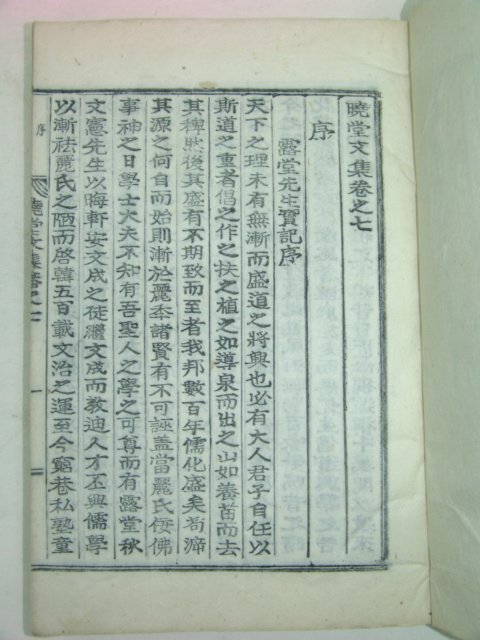 曉堂文集卷之七
序
露堂先生實記序
天下之理未有無漸而盛道之將興也必有大人君子自任以
斯道之重者倡之作之扶之植之如導泉而出之山如養苗而去
其稗然後其盛有不期致而至者我邦數百年儒化盛矣苟渧
其源之何自而始則漸於麗季諸賢有不可誣盖當麗氏佞佛
事神之日學士大夫不知有吾聖人之學之可尊而有露堂秋
文憲先生以晦軒安文成之徒繼文成而敎迪人才丕興儒學
以漸祛麗氏之陋而啓韓五百載文治之運至今窮巷私塾童
序
曉堂文集卷之七
一